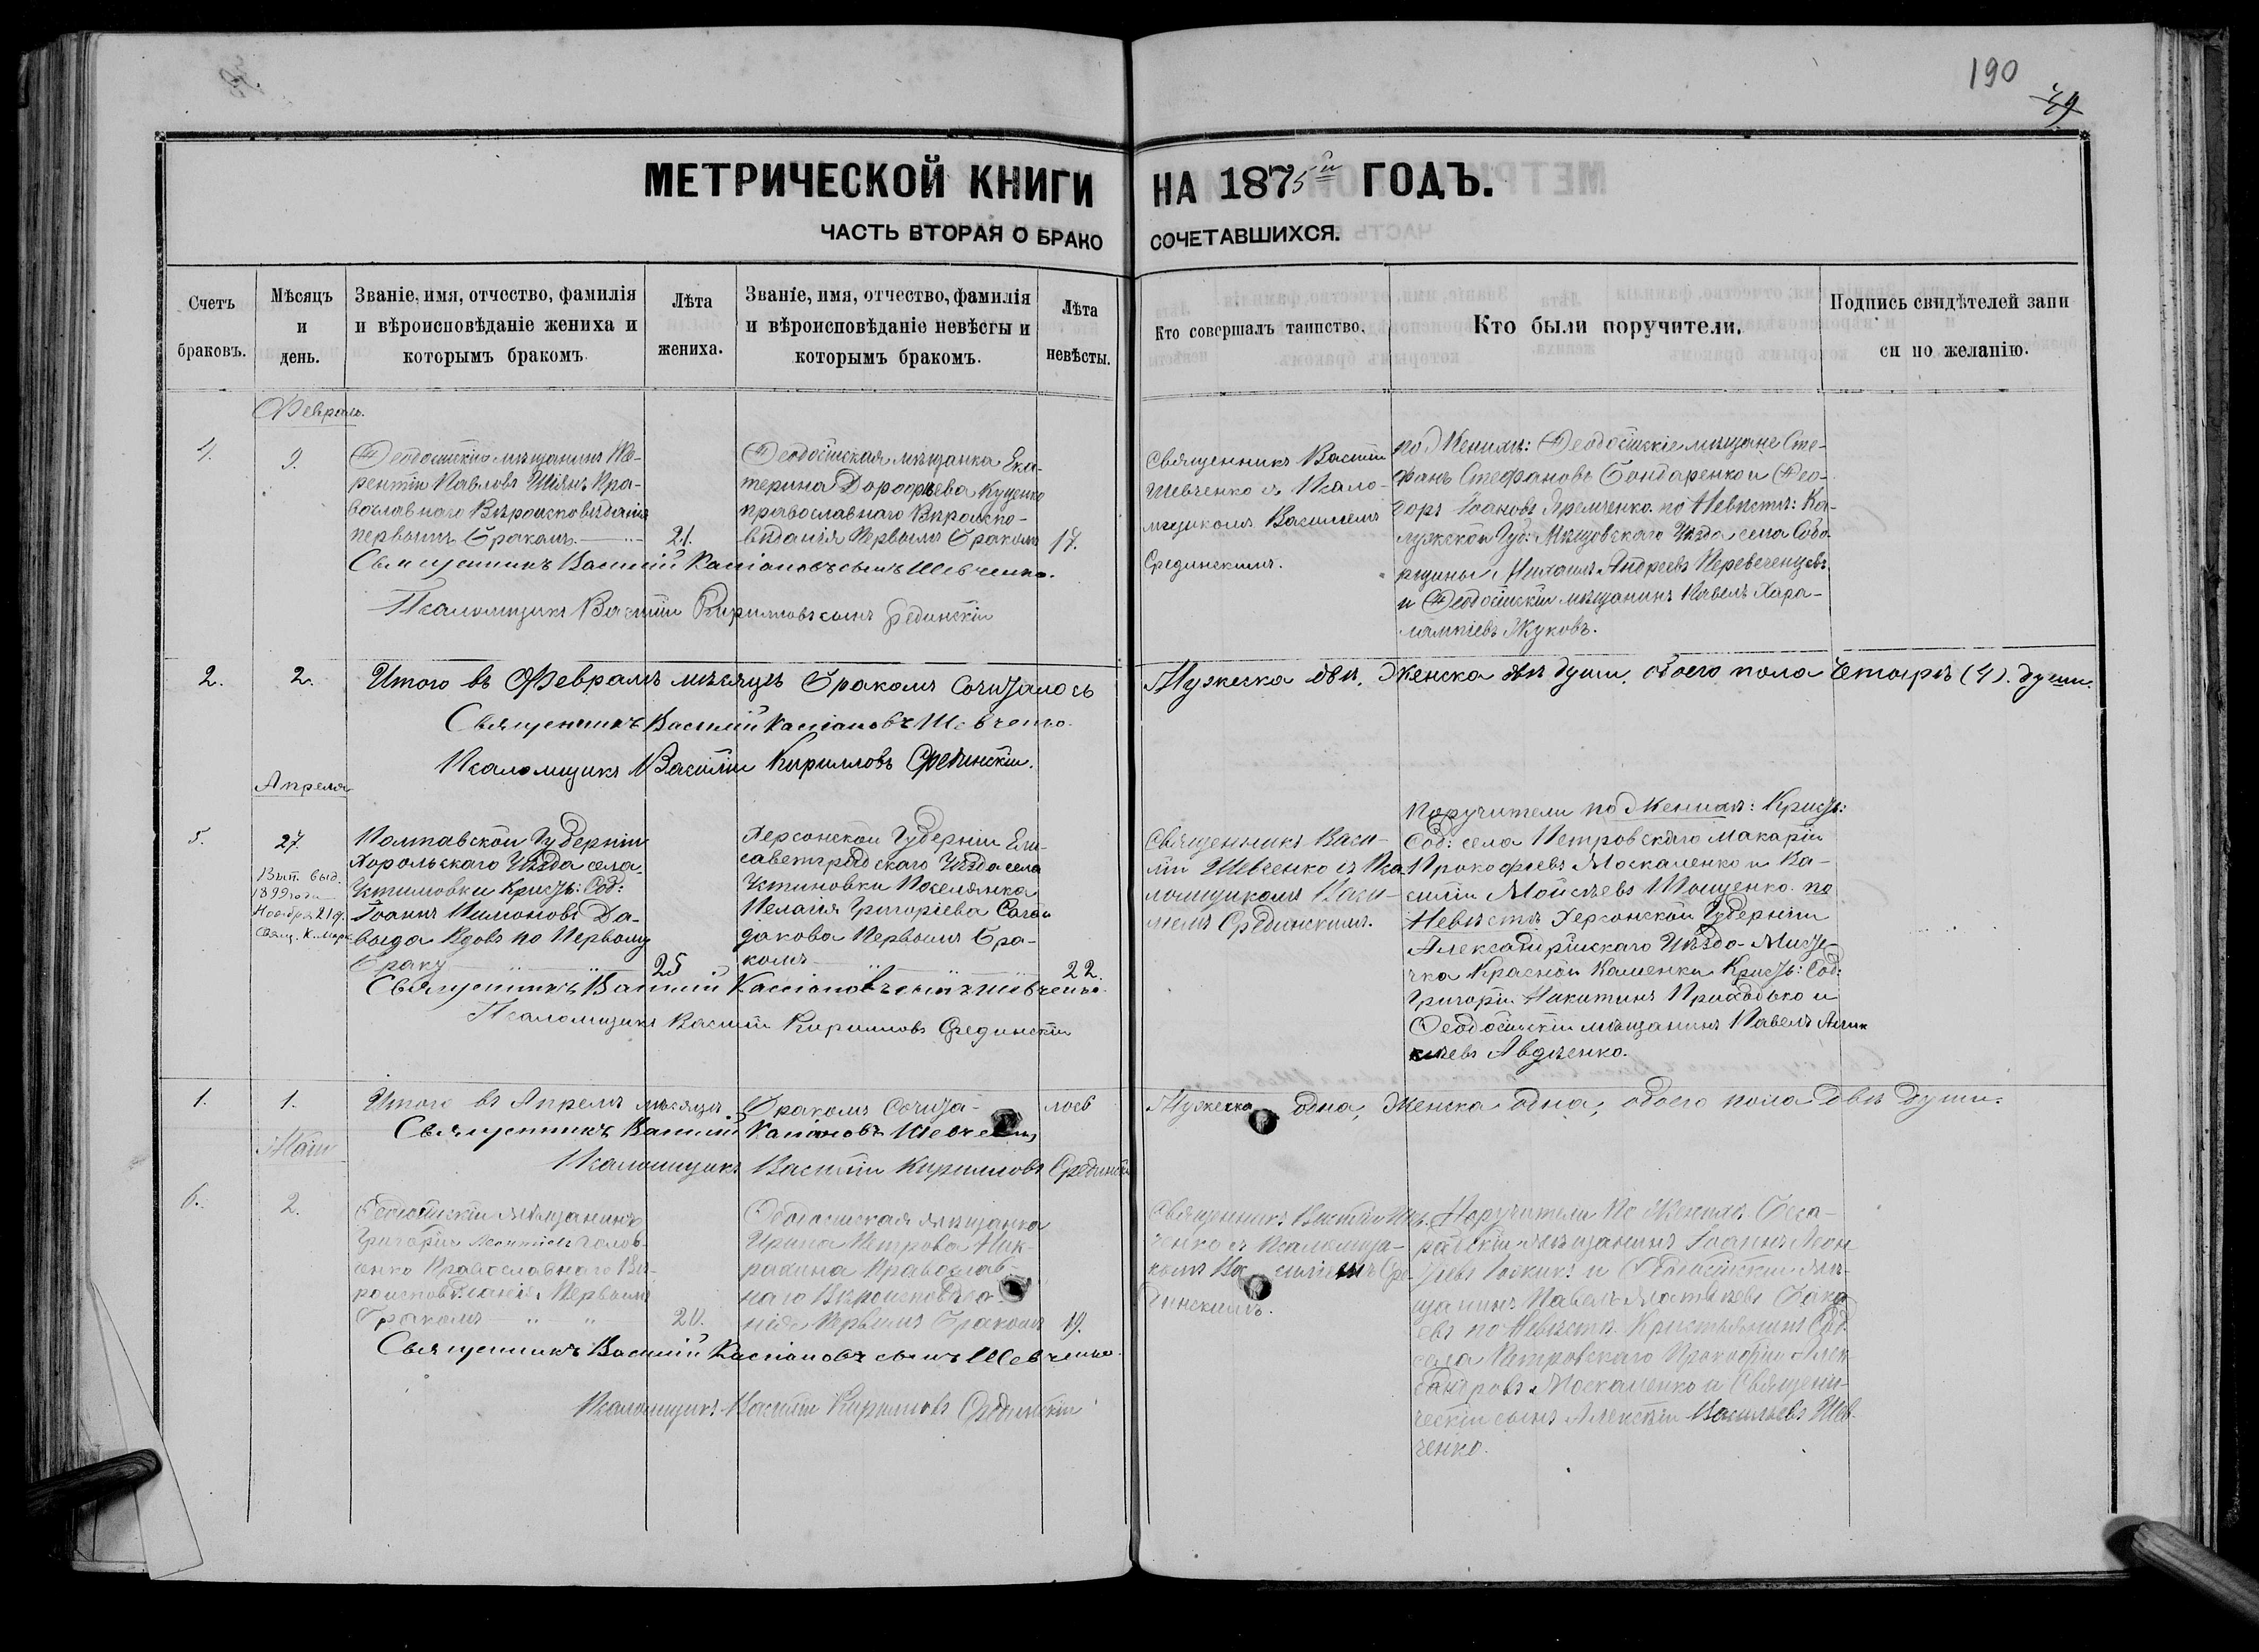 190
49
МЕТРИЧЕСКОЙ КНИГИ НА 1875й ГОДЪ.
ЧАСТЬ ВТОРАЯ О БРАКО СОЧЕТАВШИХСЯ.
Счетъ браковъ.
Мѣсяцъ и день.
Званіе, имя, отчество, фамилія и вѣроисповѣданіе жениха и которымъ бракомъ.
Лѣта жениха.
Званіе, имя, отчество, фамилія и вѣроисповѣданіе невѣсты и которымъ бракомъ.
Лѣта невѣсты.
Кто совершалъ таинство.
Кто были поручители.
Подпись свидѣтелей записи по желанію.
Февраль.
4.
9.
Феодосійскій мѣщанинъ Те-
рентій Павловъ Шіянъ Пра-
вославнаго Вѣроисповѣданія
первымъ Бракомъ.
21.
Феодосійская мѣщанка Ека-
терина Дорофѣева Куценко
православнаго Вѣроиспо-
вѣданія Первымъ Бракомъ
17.
Священникъ Василій
Шевченко съ Псало-
мщикомъ Василіемъ
Срединскимъ.
по Женихѣ: Феодосійскіе мѣщане Сте-
фанъ Стефановъ Бондаренко и Фео-
доръ Іоановъ Яремченко по Невѣстѣ: Ка-
лужской Губ: Мѣщовскаго Уѣзда села
Михаилъ Андреевъ
и Феодосійскій мѣщанинъ Павелъ Хара-
лампіевъ Жуковъ.
Священникъ Василій Кассіановъ сынъ Шевченко.
Псаломщикъ Василій Кирилловъ сынъ Срединскій
2.
2.
Итого въ Февралѣ мѣсяцѣ Бракомъ Сочиталось
Мужеска двѣ, Женска двѣ души, обоего пола Четыре (4). души.
Священникъ Василій Кассіановъ Шевченко.
Псаломщикъ Василій Кирилловъ Срединскій.
Апреля
5.
27.
Вып. выд.
1899 года
Ноября 21 д.
Свящ. К.
Полтавской Губерніи
Хорольскаго Уѣзда села
Устимовки Крестъ: Соб:
Іоаннъ Да-
выда Вдовъ по Первому
Браку
25
Херсонской Губерніи Ели-
саветградскаго Уѣзда села
Устиновки Поселянка
Пелагія Григоріева Сагай
дакова Первымъ Бра-
комъ
22.
Священникъ Васи-
лій Шевченко съ Пса
ломщикомъ Васи-
ліемъ Срединскимъ.
Поручители по Женихѣ: Крестъ:
Соб: села Петровскаго Макарій
Прокофіевъ Москаленко и Ва-
силій Мойсѣевъ по
Невѣстѣ Херсонской Губерніи
Александрійскаго Уѣзда Місте-
чка Красной Каменки Крестъ: Соб:
Григорій Никитинъ Приходько и
Феодосійскій мѣщанинъ Павелъ
Авдѣенко.
Священникъ Василій Кассіановъ сынъ Шевченко
Псаломщикъ Василій Кирилловъ Срединскій
1.
1.
Итого въ Апрелѣ мѣсяцѣ Бракомъ Сочита- лось
Мужеска одна, Женска одна, обоего пола двѣ души.
Священникъ Василій Касіановъ Шевченко
Псаломщикъ Василій Кирилловъ Срединскій
Май
6.
2.
Феодосійскій мѣщанинъ
Григорій Леонтіевъ Голов-
ченко Православнаго Вѣ-
роисповѣданія Первымъ
Бракомъ
20.
Феодосійская мѣщанка
Ирина Петрова
Православ-
наго Вѣроисповѣда-
нія Первымъ Бракомъ
19.
Священникъ Василій Шев-
ченко съ Псаломщи-
комъ Василіемъ Сре-
динскимъ.
Поручители По Женихѣ Бесса-
рабскій мѣщанинъ Іоаннъ Леон-
тіевъ и Феодосійскій мѣ-
щанинъ Павелъ Матвѣевъ
по Невѣстѣ. Крестьянинъ Соб:
села Петровскаго Прокофій Алек-
сандровъ Москаленко и Священи-
ческій сынъ Алексѣй Васильевъ Шев-
ченко.
Священникъ Василій Кассіановъ сынъ Шевченко.
Псаломщикъ Василій Кирилловъ Срединскій